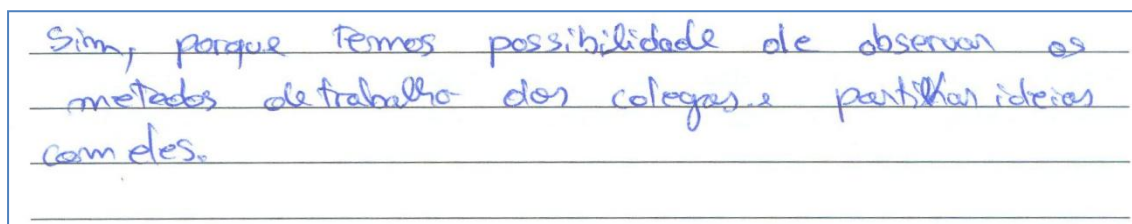 Sim, porque temos possibilidade de observar os
metodos de trabalho dos colegas e partilhar ideias
com eles.